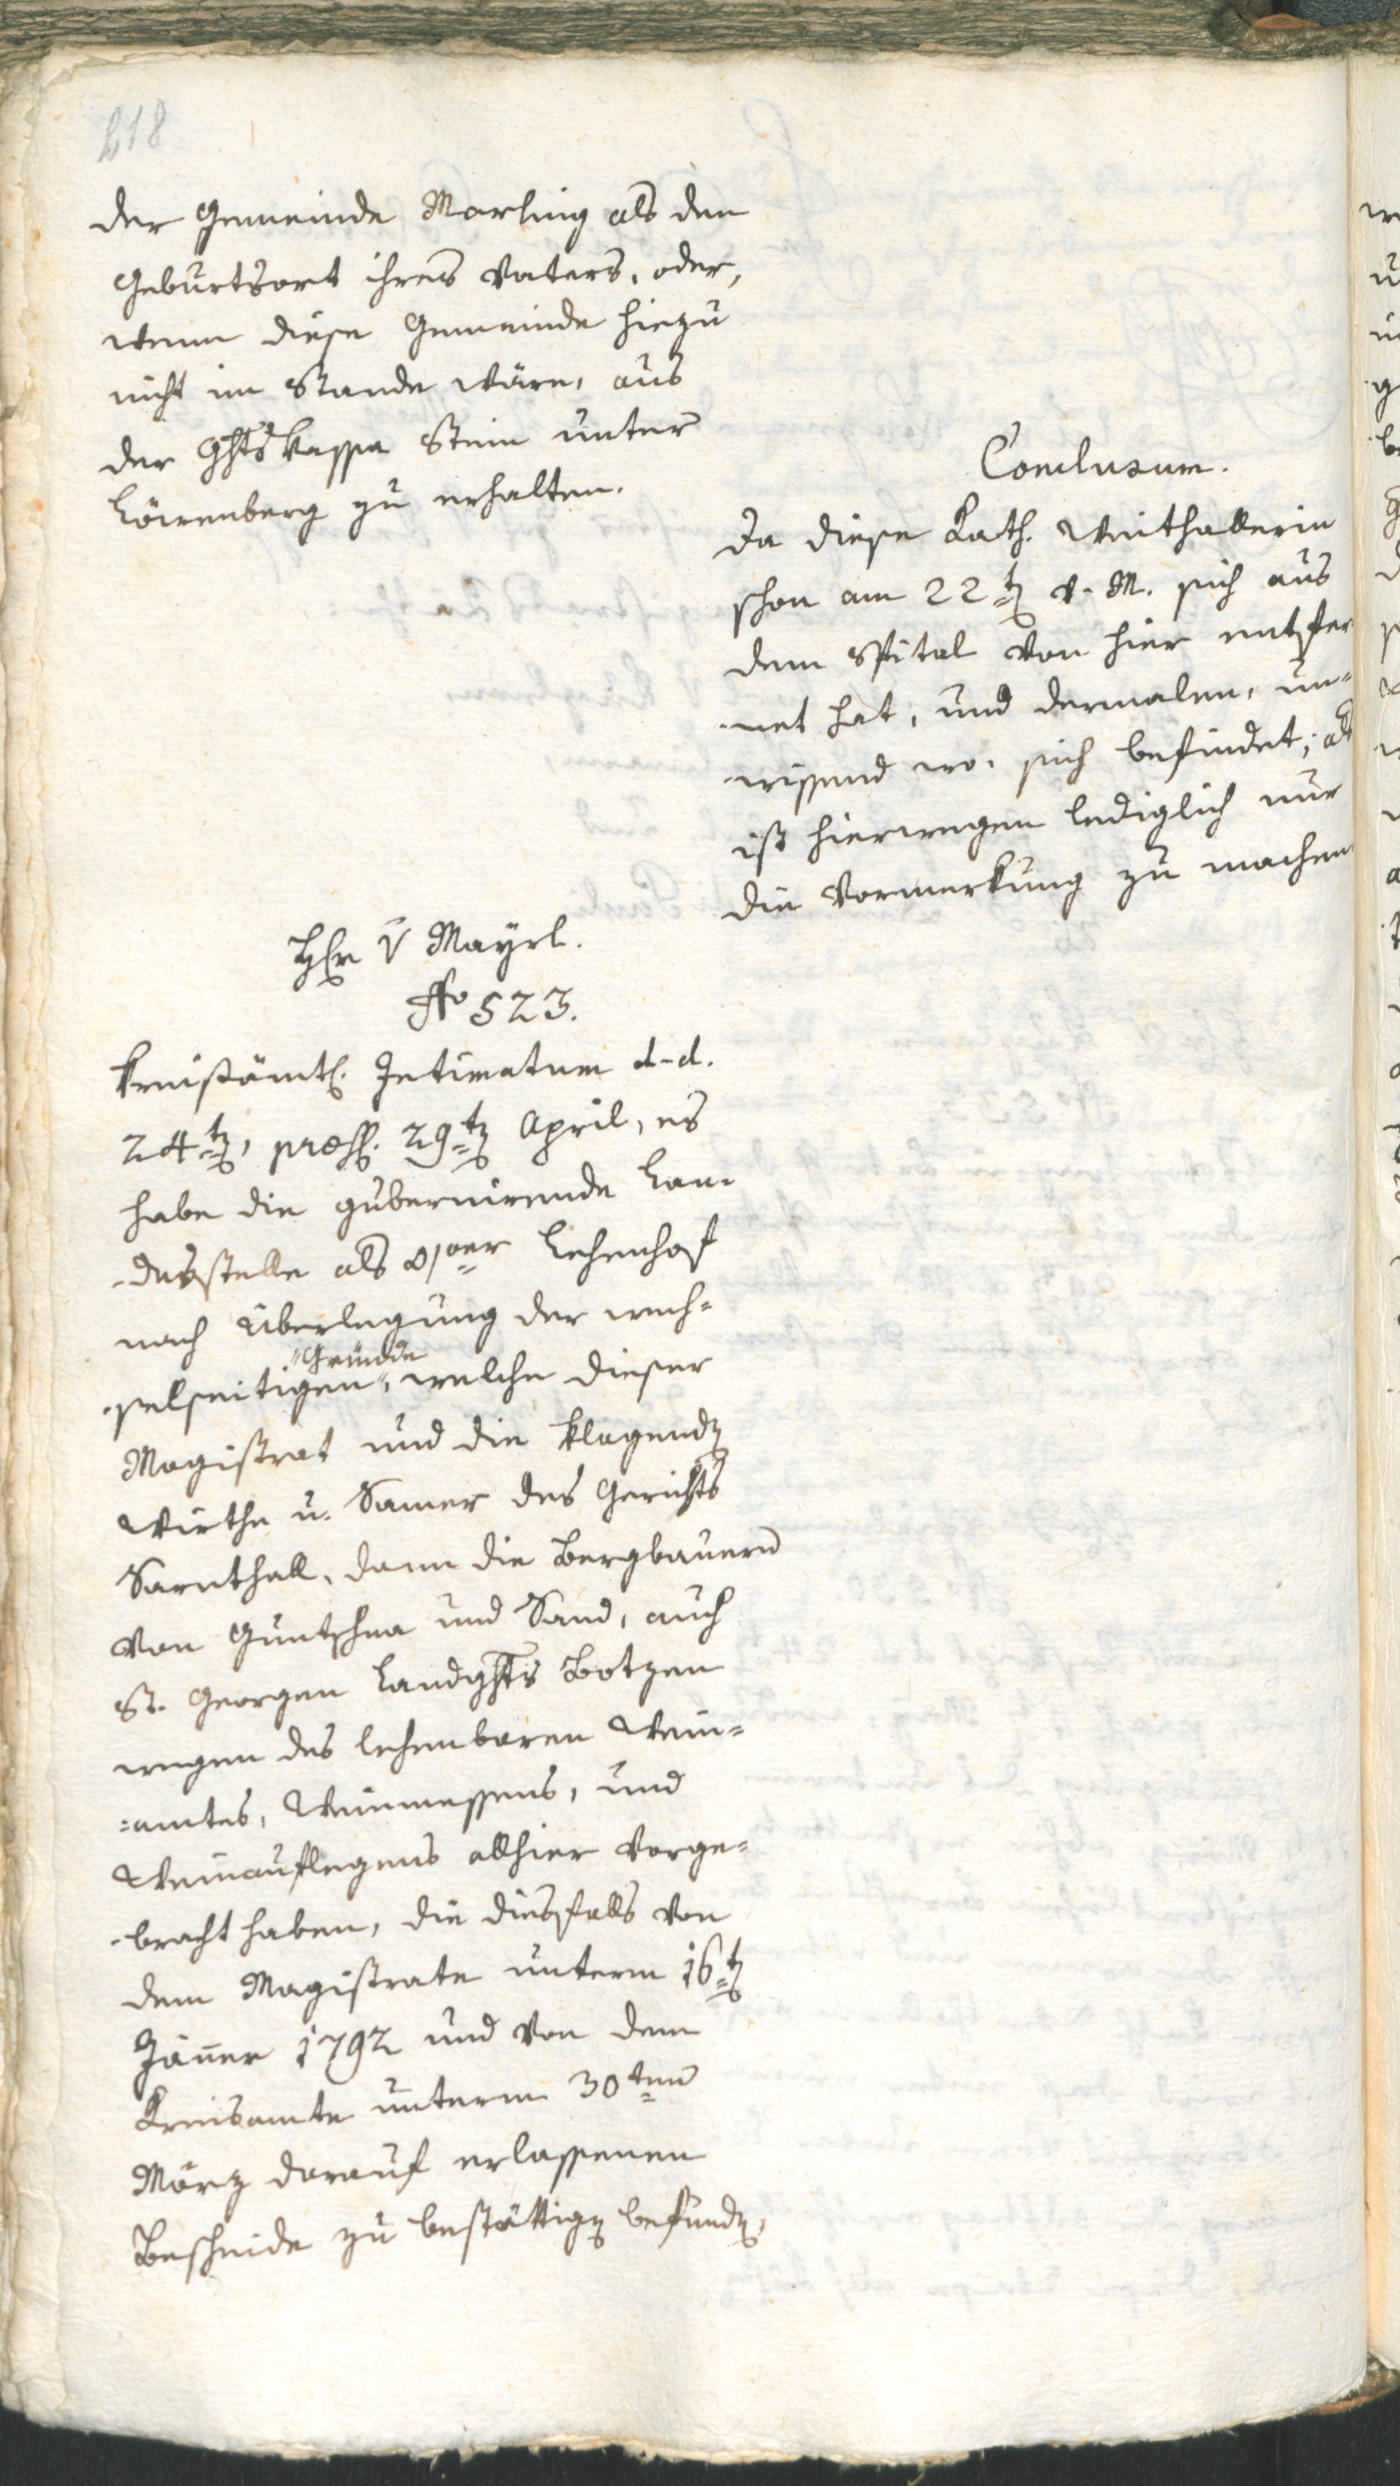 218
der Gemeinde Marling als den
Geburtsort ihres Vaters, oder,
wenn diese Gemeinde hiezu
nicht im Stande wäre, aus
der Ghtskassa Stein unter
Löwenberg zu erhalten.
Conclusum.
Da diese Kath. Weithallerin
schon am 22t v. M. sich aus
dem Spital von hier entfer
net hat, und dermalen, un-
wissend wo, sich befindet; als
ist hierwegen lediglich nur
die Vormerkung zu machen
Hr v Mayrl.
No 523.
Kreisämtl. Intimatum d-d.
24t, præs. 29t April, es
habe die gubernirende Lan-
desstelle als Lehenhof
nach Überlegung der wech-
selseitigen "Gründe", welche dieser
Magistrat und die klagend
Wirthe u. Samer des Gerichts
Sarnthall, dann die Bergbauern
von Guntschna und Sand, auch
St. Georgen Landghts Botzen
wegen des lehenbaren Wein-
=amtes, Weinmessens, und
Weinauflegens allhier vorge-
bracht haben, die diesfalls von
dem Magistrate unterm 16t
Jäner 1792 und von dem
Kreisamte unterm 30ten
März darauf erlassenen
Bescheide zu bestättig befund,